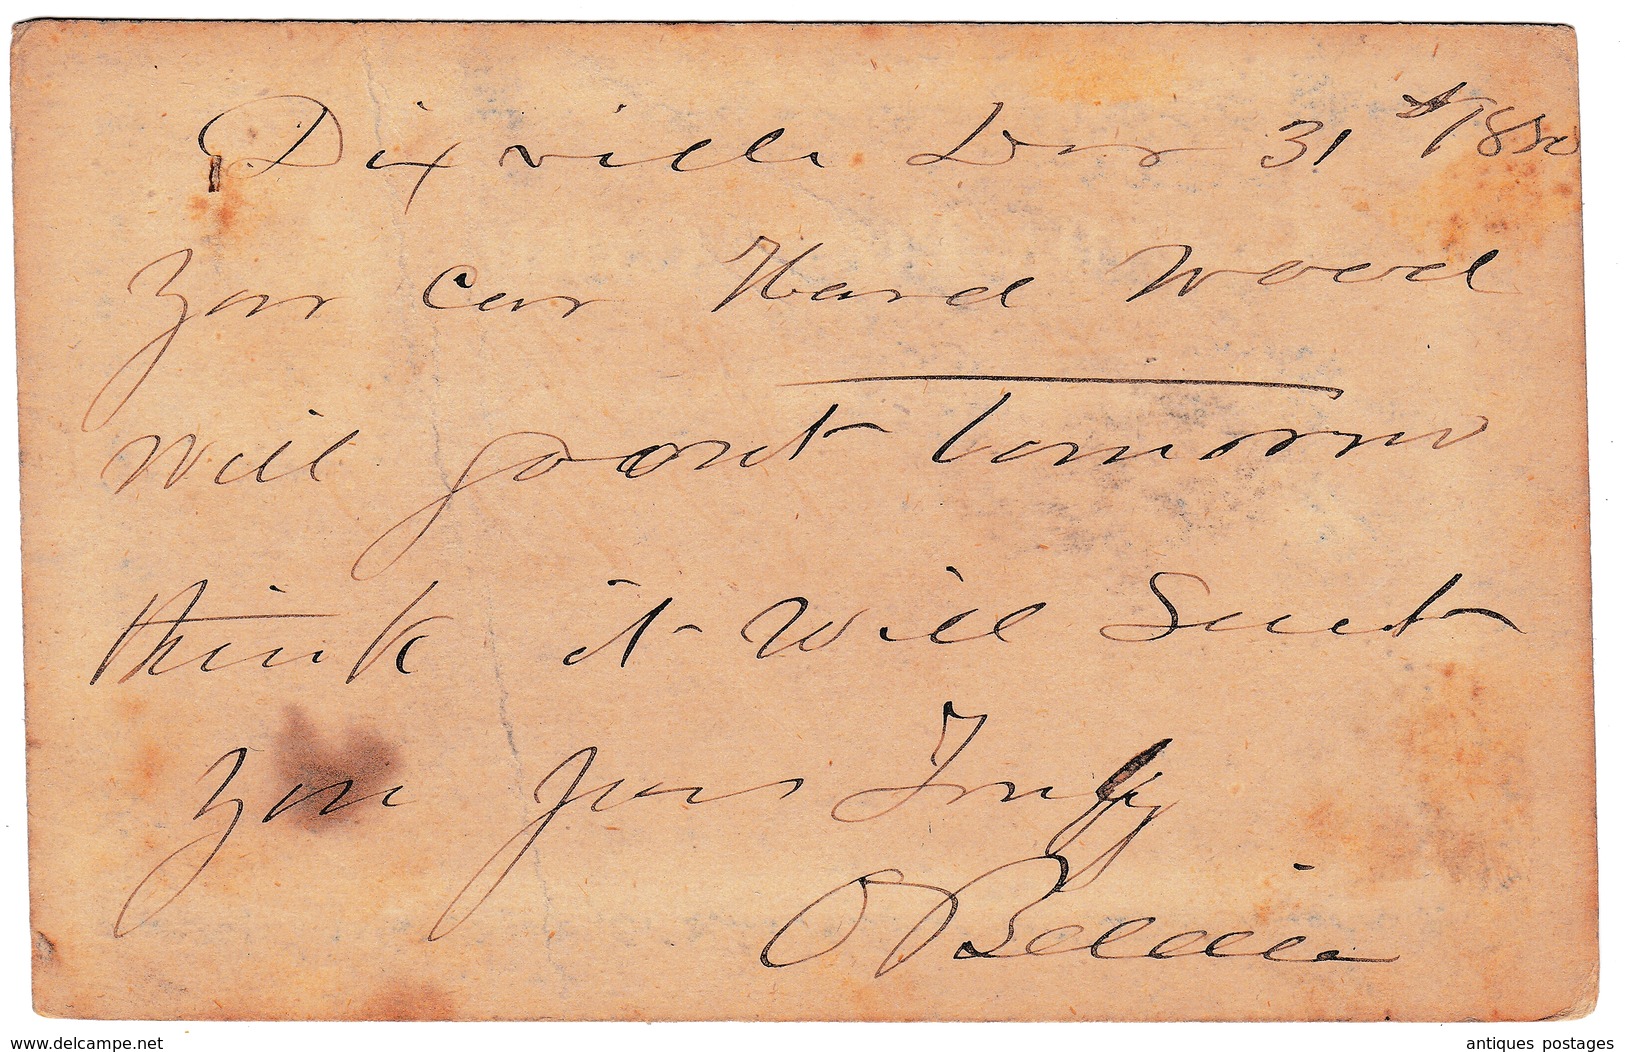 Dixville Dec 31st 1880
Your Car Hard Wood
Will go out tomorrow
think it Will Suit
You yours Truly
O
delcampe.net
antiques postages